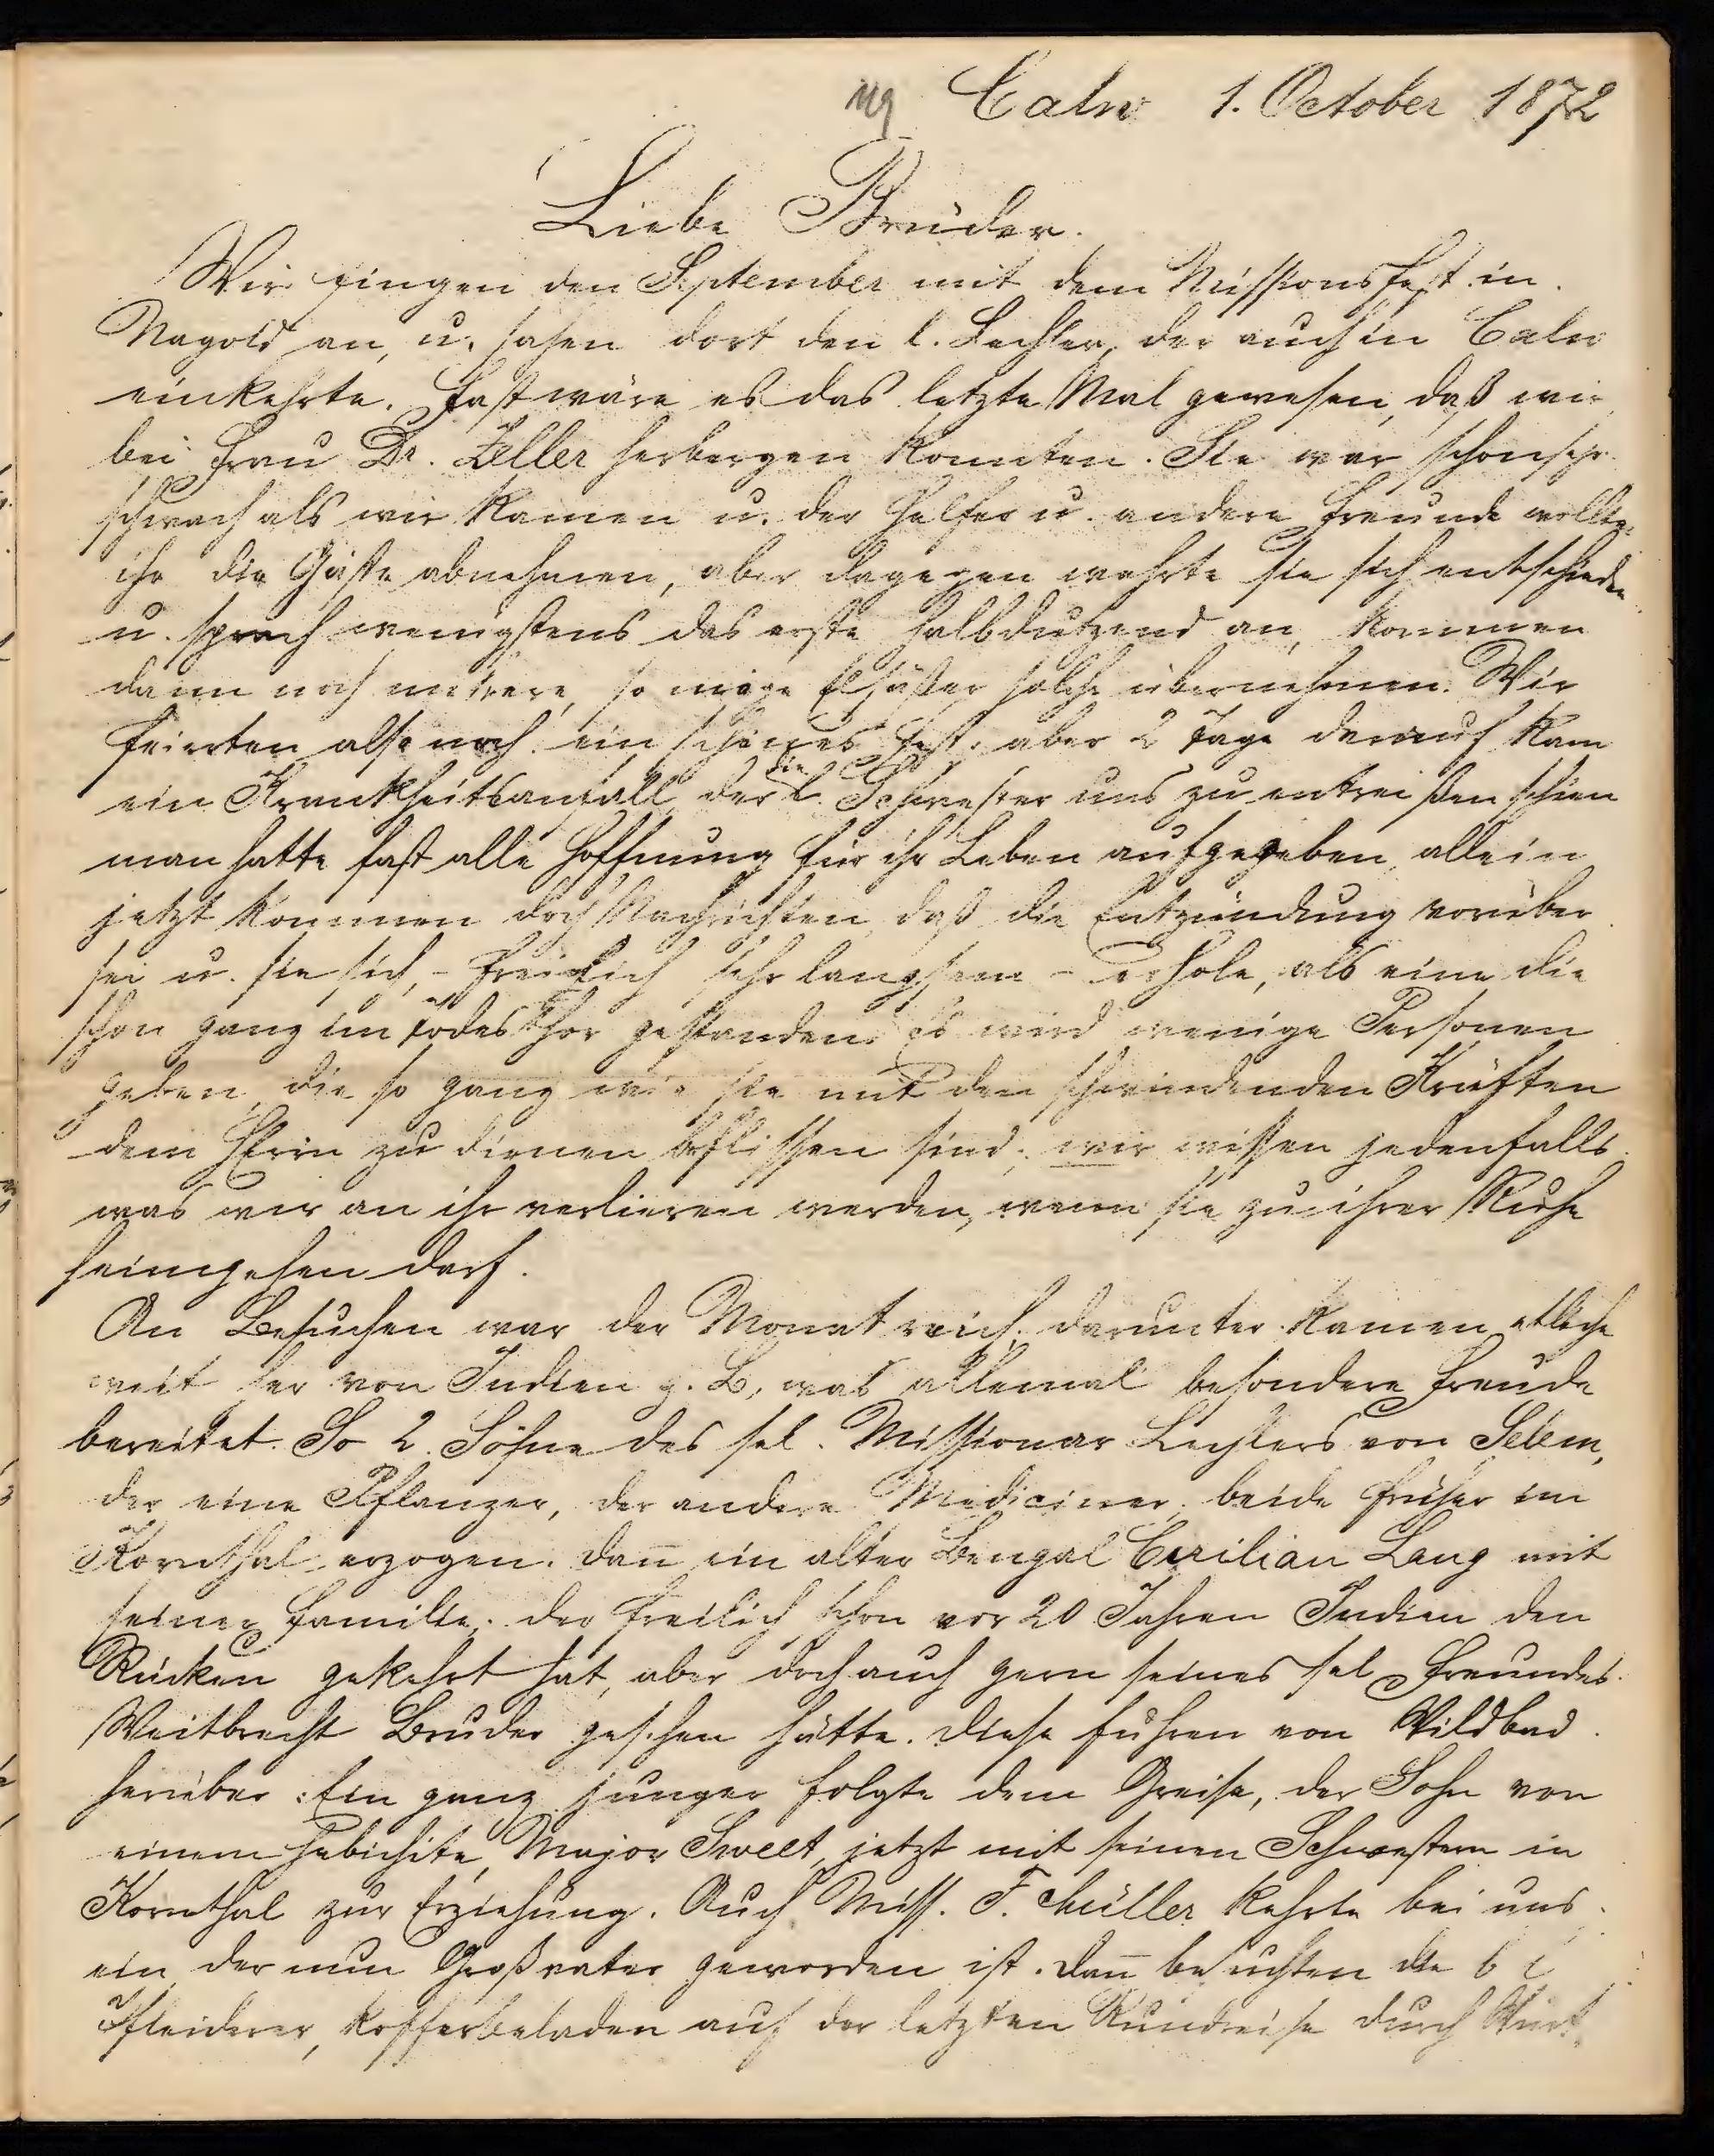 Calw 1. October 1872
Liebe Brüder.
Wir fingen den September mit dem Missionsfest in
Nagold an, u. sahen dort den l. Lechler, der auch in Calw
einkehrte. Fast wäre es das letzte Mal gewesen, daß wir
bei Frau Dr. Zeller herbergen konnten. Sie war schon sehr
schwach als wir kamen u. der Helfer u. andere Freunde wollten
ihr die Gäste abnehmen, aber dagegen wehrte sie sich entschieden
u. sprach wenigstens das erste halbdutzend an, kommen
dann noch mehrere, so möge solche übernehmen. Wir
feierten also noch ein schönes Fest, aber 2 Tage darauf kam
ein Krankheitsanfall, der die l. Schwester uns zu entreißen schien
man hatte fast alle Hoffnung für ihr Leben aufgegeben, allein
jetzt kommen doch Nachrichten, daß die Entzündung vorüber
sei u. sie sich, - freilich sehr langsam - erhole, als eine die
schon ganz im Todesthor gestanden. Es wird wenige Personen
geben, die so ganz wie sie mit den schwindenden Kräften
dem HErrn zu dienen beflissen sind; wir wissen jedenfalls
was wir an ihr verlieren werden, wenn sie zu ihrer Ruhe
heimgehen darf.
An Besuchen war der Monat reich, darunter kamen etliche
weit her von Indien z. B, was allemal besondere Freude
bereitet. So 2 Söhne des sel. Missionar Lechlers von Selem,
der eine Pflanzer, der andere Mediciner, beide früher im
Kornthal erzogen. Dan̄ ein alter Bengal Civilian Lang mit
seiner Familie, der freilich schon vor 20 Jahren Indien den
Rücken gekehrt hat, aber doch auch gern seines sel Freundes
Weitbrecht Bruder gesehen hätte. Diese fuhren von Wildbad
herüber. Ein ganz junger folgte dem Greise, der Sohn von
einem Major Sweet, jetzt mit seinen Schwestern in
Kornthal zur Erziehung. Auch Miss. F. Müller kehrte bei uns
ein, der nun Großvater geworden ist. Dan̄ besuchten die
Pfleiderer, kofferbeladen auf der letzten Rundreise durch Würt.